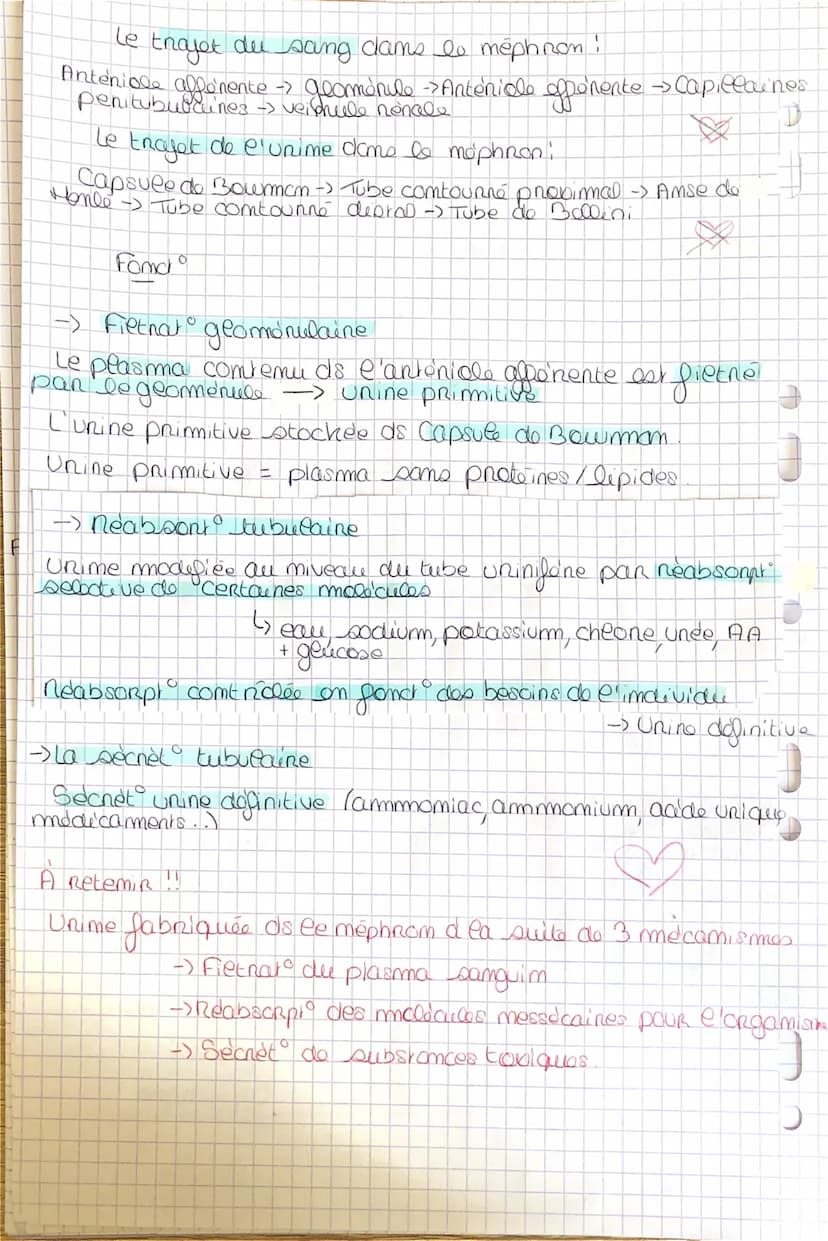 Le trajet du sang dans le néphron :
Artériole afférente -> glomérule -> Artériole efférente -> Capillaires
peritubulaires -> veinule rénale
Le trajet de l'urine dans le néphron :
Capsule de Bowman -> Tube contourné proximal -> Anse de
Henlé -> Tube contourné distal -> Tube de Bellini
Fonct°
-> Filtrat° glomérulaire
Le plasma contenu ds l'artériole afférente est filtré
par le glomérule —> urine primitive
L'urine primitive stockée ds Capsule de Bowman.
Urine primitive = plasma sans protéines / lipides.
-> Réabsorpt° tubulaire
Urine modifiée au niveau du tube urinifère par réabsorpt°
selective de certaines molécules
↳ eau, sodium, potassium, chlore, urée, AA
+ glucose
Réabsorpt° contrôlée en fonct° des besoins de l'individu
-> Urine définitive
-> La sécrét° tubulaire
Sécrét° urine définitive (ammoniac, ammonium, acide urique,
médicaments..)
À retenir !!
Urine fabriquée ds le néphron à la suite de 3 mécanismes
-> Filtrat° du plasma sanguin
-> Réabsorpt° des molécules nésécaires pour l'organism
-> Sécrét° de substances toxiques.